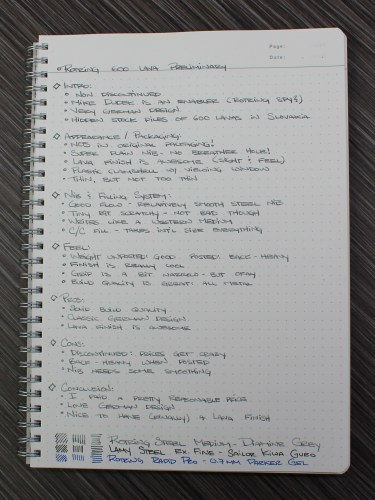 Page:
Date:
Rotring 600 Lava Preliminary
Intro:
Now discontinued
Mike Dudek is an enabler (Rotring spy?)
Very German design
Hidden stock piles of 600 Lavas in Slovakia
Appearance / Packaging:
NOS in original packaging!
Super plain nib - no breather hole!
Lava finish is awesome (sight & feel)
Plastic clamshell w/ viewing window
Thin, but not too thin
Nib & Filling System:
Good flow - relatively smooth steel nib
Tiny bit scratchy - not bad though
Writes like a western medium
C/C fill - takes int'l size everything
Feel:
Weight unposted: good posted: back-heavy
Finish is really cool
Grip is a bit narrow - but okay
Build quality is great: all metal
Pros:
Solid build quality
Classic German design
Lava finish is awesome
Cons:
Discontinued: prices get crazy
Back-heavy when posted
Nib needs some smoothing
Conclusion:
I paid a pretty reasonable price
Love German design
Nice to have (finally) a Lava finish
Rotring Steel Medium - Diamine Grey
Lamy Steel Ex. Fine - Sailor Kiwa Guro
Rotring Rapid Pro - 0.7mm Parker Gel